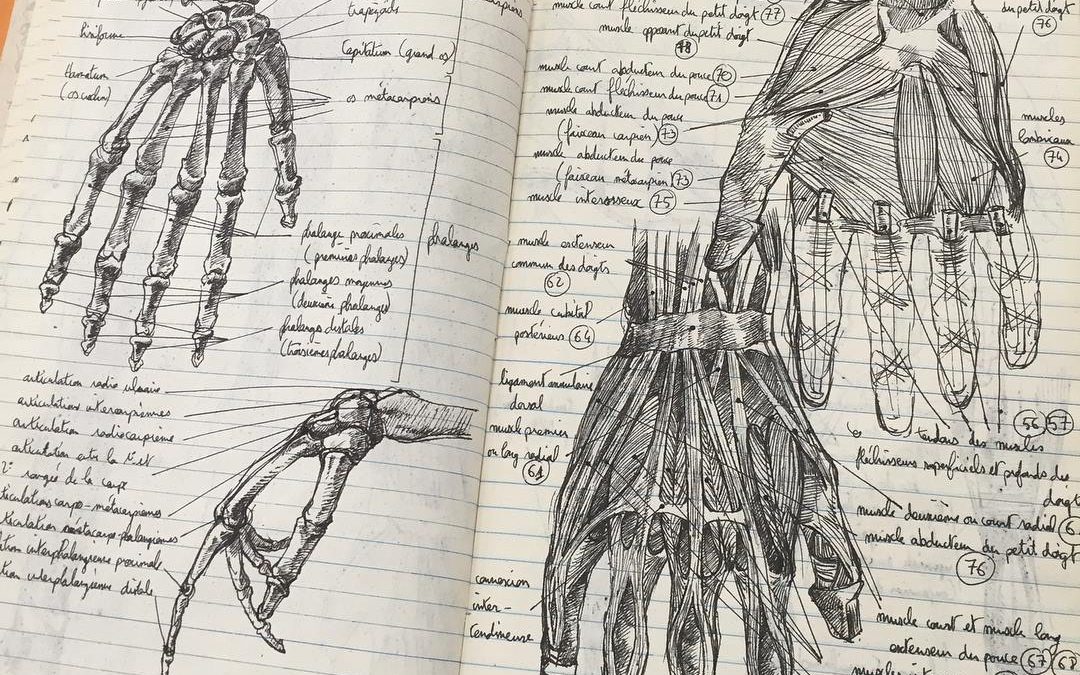 trapézoïde
Pisiforme
Capitatum (grand os)
Hamatum
(os crochu)
os métacarpiens
phalange proximales
(premières phalanges)
phalanges
phalanges moyennes
(deuxième phalanges)
phalanges distales
(troisièmes phalanges)
articulation radio ulnaire
articulations intercarpiennes
articulation radiocarpienne
articulation entre la 1e et
2e rangée de la carpe
articulations carpo-métacarpiennes
articulation métacarpo phalangiennes
interphalangienne proximale
interphalangienne distale
muscle court fléchisseur du petit doigt 77
muscle opposant du petit doigt
78
du petit doigt
76
muscle court abducteur du pouce 70
muscle court fléchisseur du pouce 71
muscle abducteur du pouce
(faisceau carpien) 73
muscle abducteur du pouce
(faisceau métacarpien) 73
muscle interosseux 75
muscles
lombricaux
74
muscle extenseur
commun des doigts
62
muscle cubital
postérieur 64
ligament annulaire
dorsal
muscle premier
ou long radial
61
connexion
inter-
tendineuse
56 57
tendons des muscles
fléchisseurs superficiels et profonds des
doigts
muscle deuxième ou court radial 6
muscle abducteur du petit doigt
76
muscle court et muscle long
extenseur du pouce 67 68